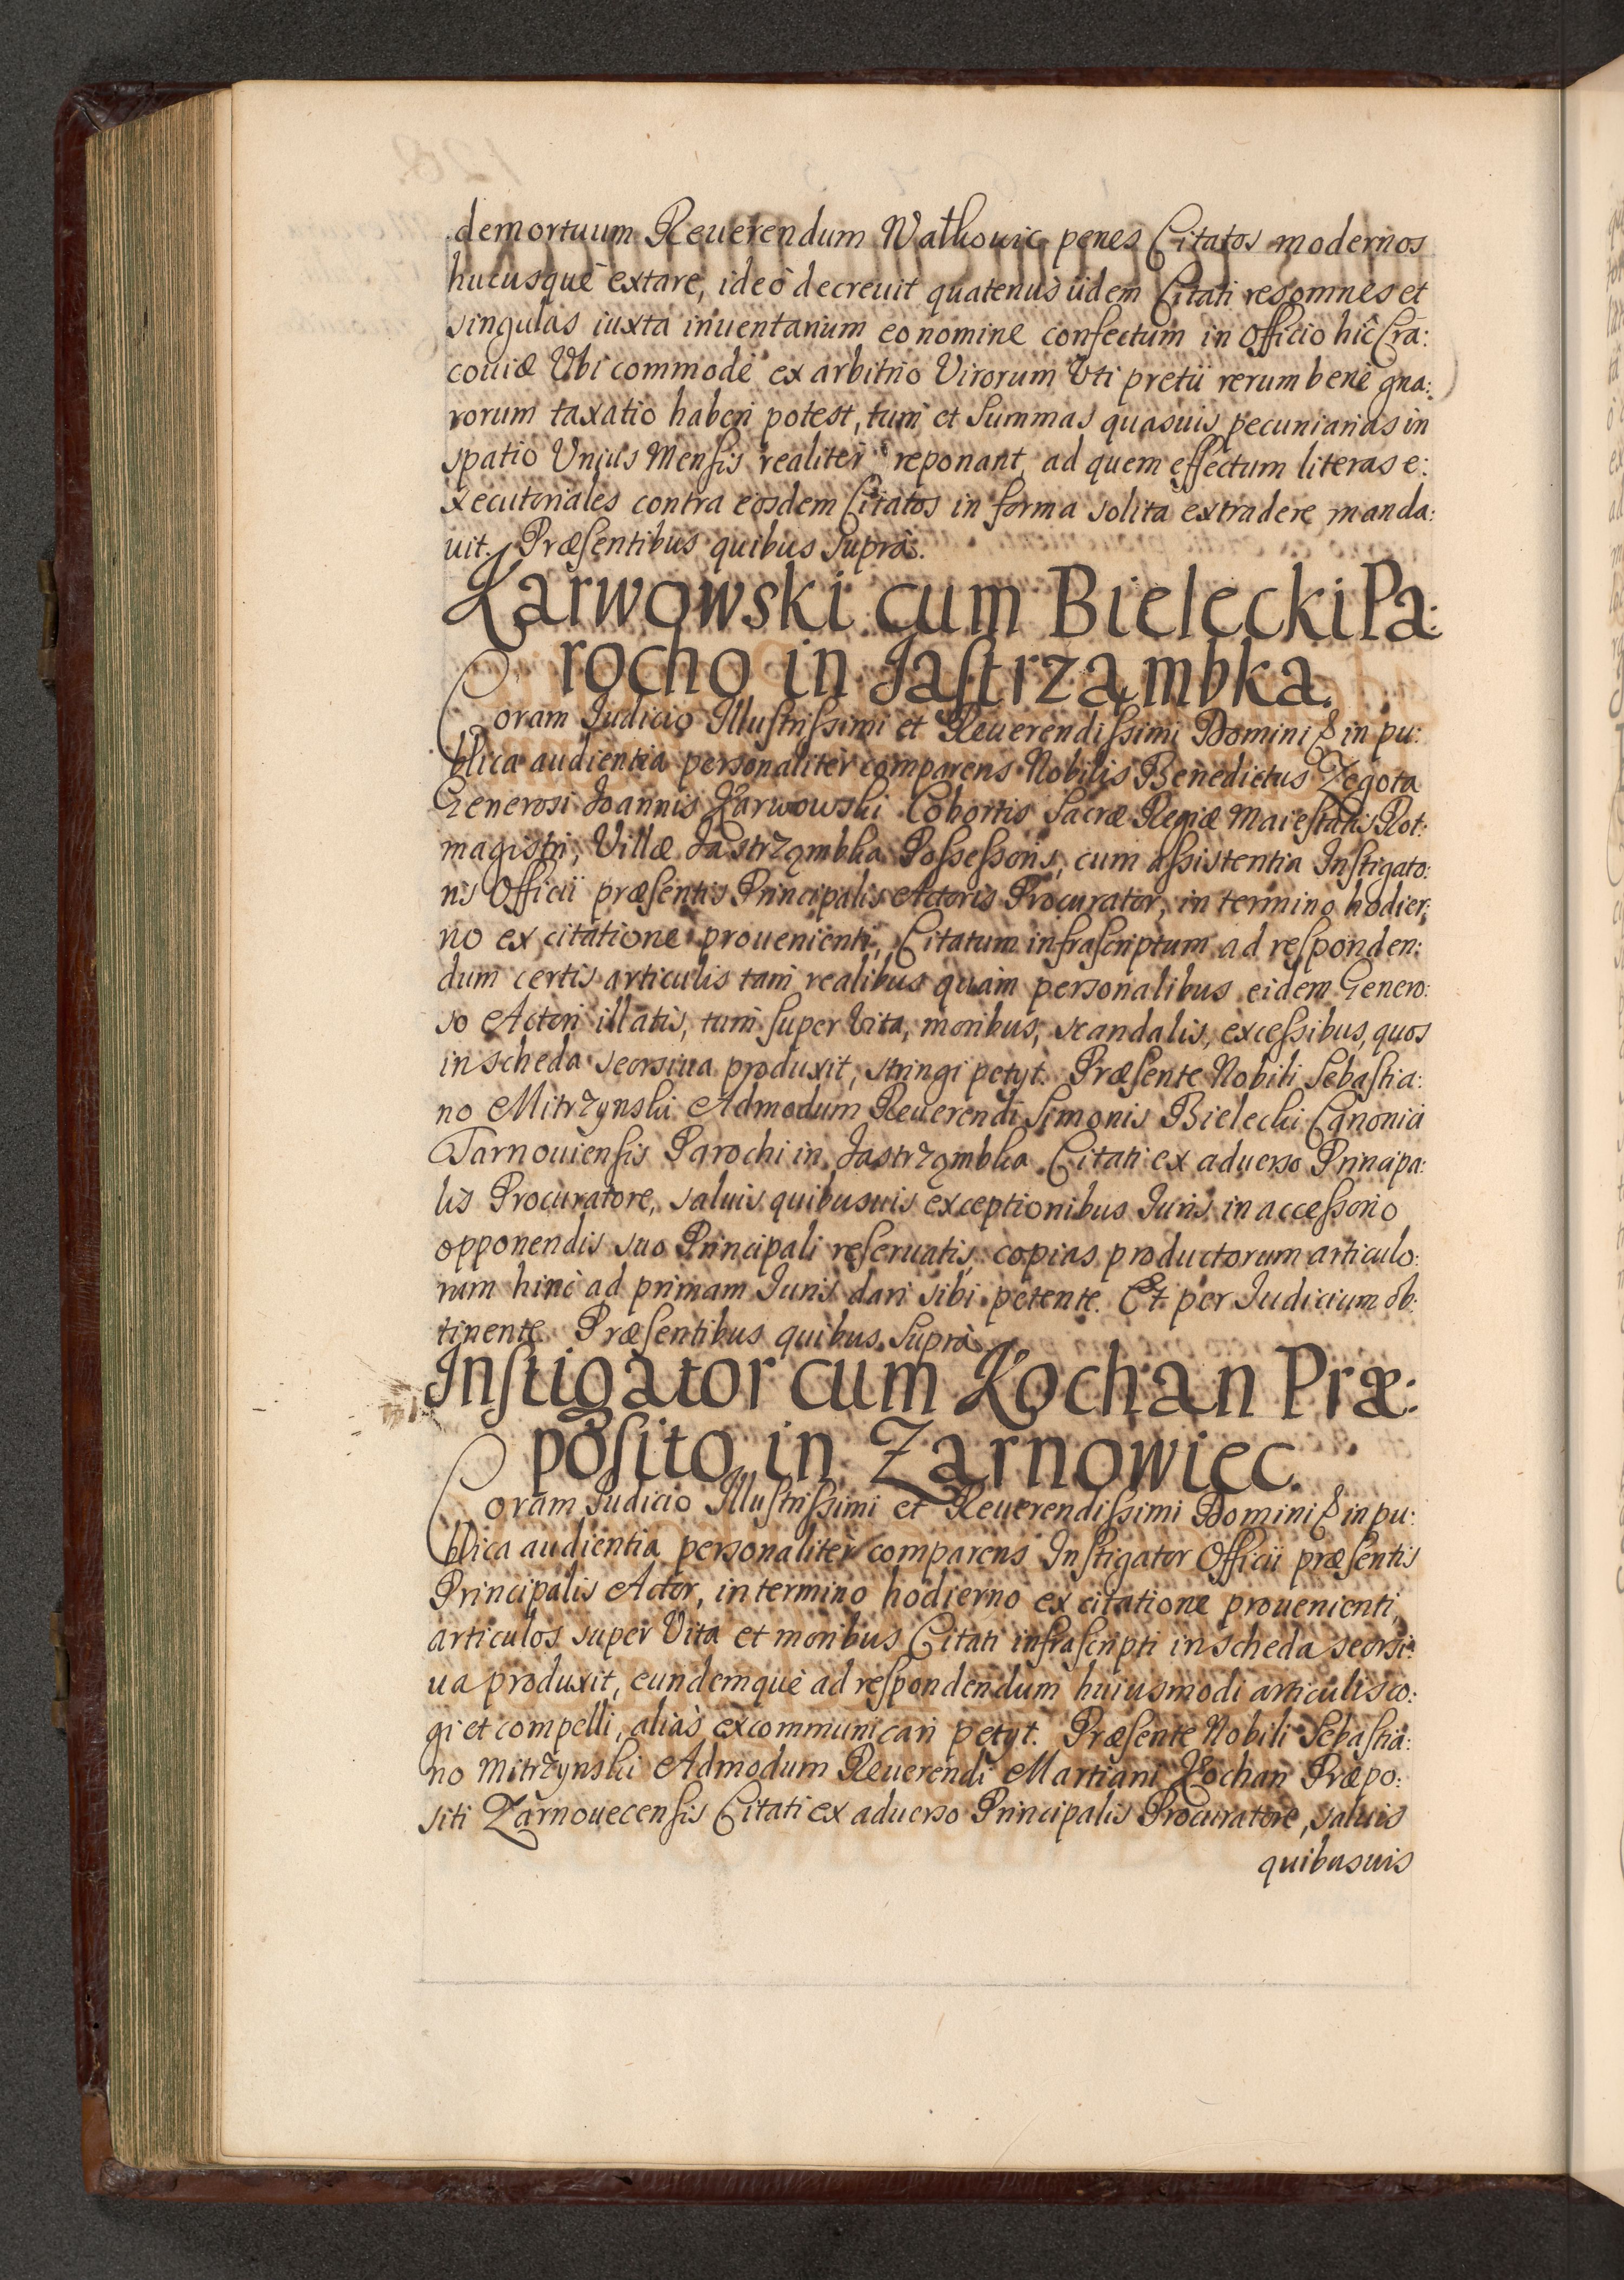 demortuum Reuerendum Wałkowic penes Citatos modernos
hucusquè extare, ideò decreuit quatenus iidem Citati res omnes et
singulas iuxta inuentarium eo nomine confectum in Officio hîc Cra:
couiæ Vbi commodè ex arbitrio Virorum Vti pretii rerum benè gna:
rorum taxatio haberi potest, tum et Summas quasuis pecuniarias in
spatio Vnius Mensis realiter reponant, ad quem effectum literas e:
xecutoriales contra eosdem Citatos in forma solita extradere manda:
uit. Præsentibus quibus Suprà.
Karwowski cum Bielecki Pa:
rocho in Jastrząmbka.
Coram Iudicio Illustrissimi et Reuerendissimi Domini & in pu:
blica audientia personaliter comparens Nobilis Benedictus Zegota
Generosi Joannis Karwowski Cohortis Sacræ Regiæ Maiestatis Rot:
magistri, Villæ Jastrząmbka Possessoris, cum assistentia Instigato:
ris Officii præsentis Principalis Actoris Procurator, in termino hodier:
no ex citatione prouenienti, Citatum infrascriptum ad responden:
dum certis articulis tam realibus quàm personalibus eidem Genero:
so Actori illatis, tum super Vita, moribus, scandalis, excessibus, quos
in scheda seorsiua produxit, stringi petyt. Præsente Nobili Sebastia:
no Mitrzynski Admodum Reuerendi Simonis Bielecki Canonici
Tarnouiensis Parochi in Jastrząmbka Citati ex aduerso Principa:
lis Procuratore, saluis quibusuis exceptionibus Iuris in accessorio
opponendis suo Principali reseruatis, copias productorum articulo:
rum hinc ad primam Iuris dari sibi petente. Et per Iudicium ob:
tinente. Præsentibus quibus Suprà.
Instigator cum Kochan Præ:
posito in Zarnowiec.
Coram Iudicio Illustrissimi et Reuerendissimi Domini & in pu:
blica audientia personaliter comparens Instigator Officii præsentis
Principalis Actor, in termino hodierno ex citatione prouenienti,
articulos super Vita et moribus Citati infrascripti in scheda seorsi:
ua produxit, eundemquè ad respondendum huiusmodi articulis co:
gi et compelli, aliàs excommunicari petyt. Præsente Nobili Sebastia:
no Mitrzynski Admodum Reuerendi Martiani Kochan Præpo:
siti Zarnouecensis Citati ex aduerso Principalis Procuratore, saluis
quibusuis